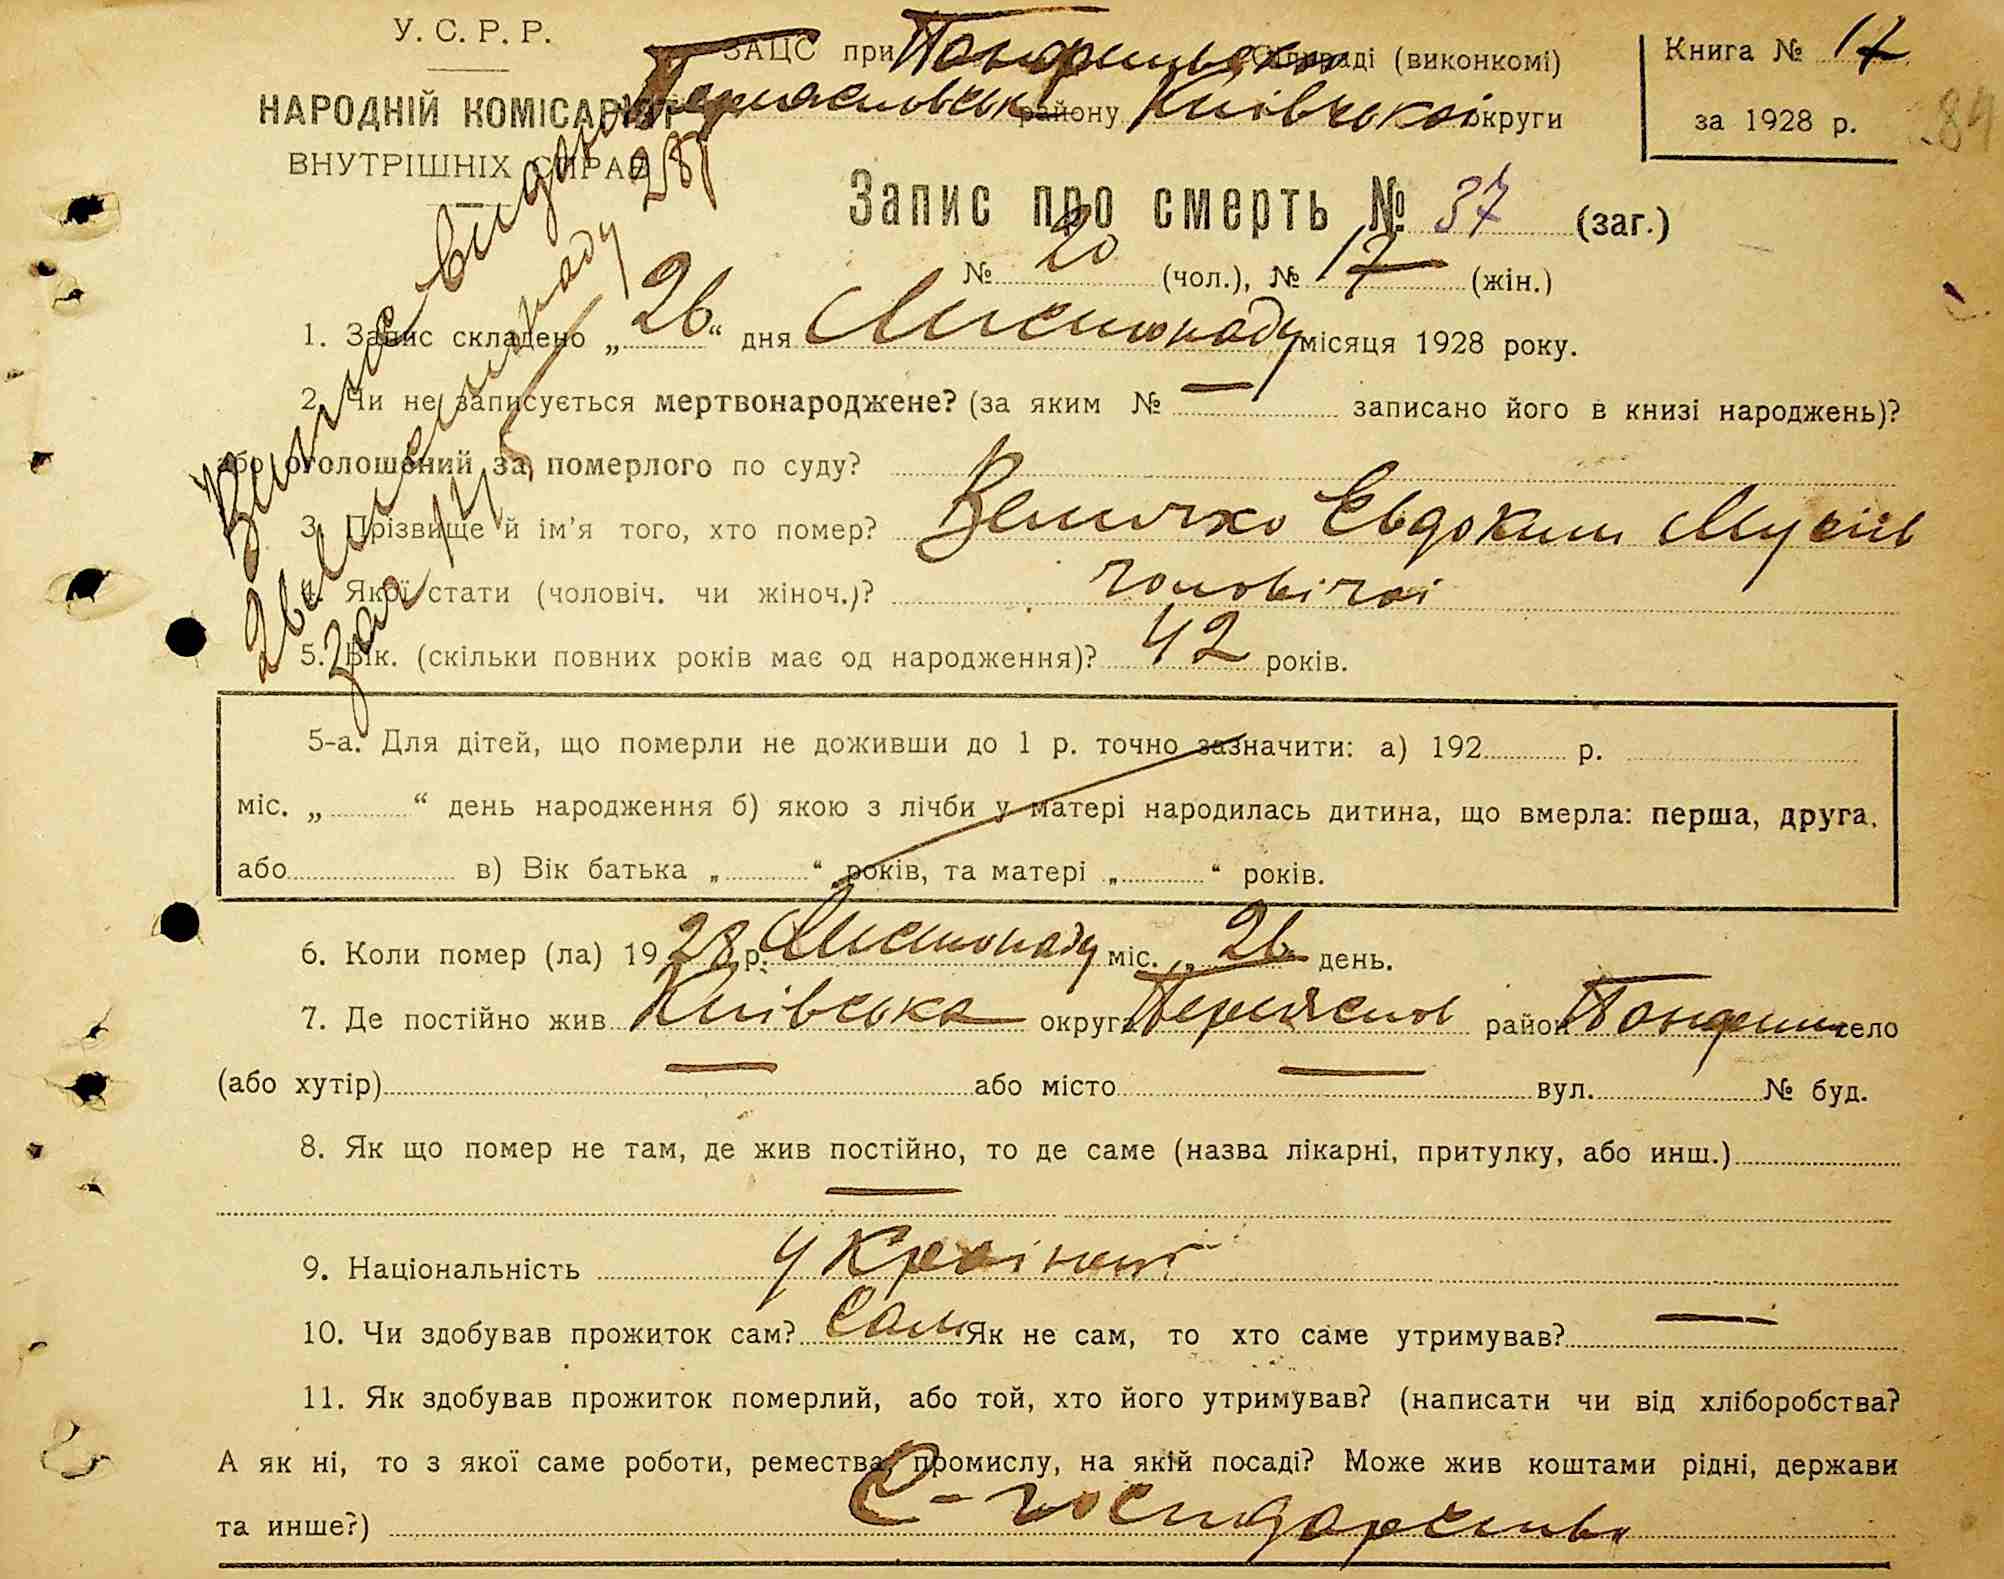 У. С. Р. Р.
НАРОДНІЙ КОМІСАРІЯТ
ВНУТРІШНІХ СПРАВ
ЗАЦС при Панфильській Сільраді (виконкомі)
Переяславськ району Київської округи
Книга № 17
за 1928 р.
84
Запис про смерть № 37 (заг.)
№ 20 (чол.), № 17 (жін.)
Витяг видано
26 листопаду 28 р
за №
1. Запис складено „ 26 “ дня Листопаду місяця 1928 року.
2. Чи не записується мертвонароджене? (за яким № — записано його в книзі народжень)?
або оголошений за померлого по суду?
3. Прізвище й ім'я того, хто помер? Величко Євдоким Мусіїв
4. Якої стати (чоловіч. чи жіноч.)? чоловічої
5. Вік. (скільки повних років має од народження)? 42 років.
5-а. Для дітей, що померли не доживши до 1 р. точно зазначити: а) 192 р.
міс. „ “ день народження б) якою з лічби у матері народилась дитина, що вмерла: перша, друга,
або в) Вік батька „ “ років, та матері „ “ років.
6. Коли помер (ла) 1928 р. Листопаду міс. „ 26 день.
7. Де постійно жив Київська округа Переяслов район Панфили село
(або хутір) — або місто — вул. № буд.
8. Як що помер не там, де жив постійно, то де саме (назва лікарні, притулку, або инш.)
—
9. Національність Українець
10. Чи здобував прожиток сам? Сам Як не сам, то хто саме утримував? —
11. Як здобував прожиток померлий, або той, хто його утримував? (написати чи від хліборобства?
А як ні, то з якої саме роботи, ремества, промислу, на якій посаді? Може жив коштами рідні, держави
та инше?) С-господарство